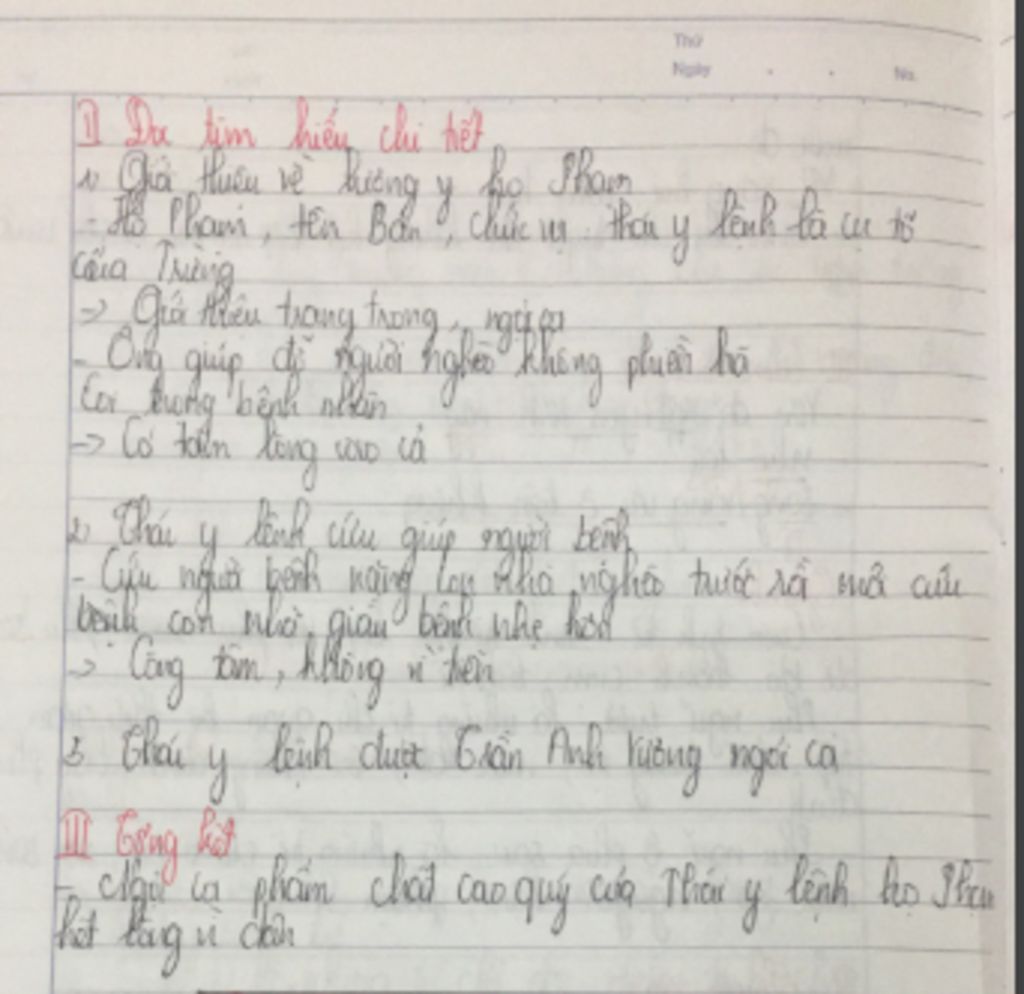 Thứ
Ngày No.
II Đọc tìm hiểu chi tiết
1, Giới thiệu về lương y họ Phạm
- Họ Phạm, tên Bân, chức vụ thái y lệnh là cụ tổ
của Trừng
-> Giới thiệu trang trọng, ngợi ca
- Ông giúp đỡ người nghèo không phiền hà
Coi trọng bệnh nhân
-> Có tấm lòng cao cả
2, Thái y lệnh cứu giúp người bệnh
- Cứu người bệnh nặng con nhà nghèo trước rồi mới cứu
bệnh con nhà giàu bệnh nhẹ hơn
-> Công tâm, không vì tiền
3, Thái y lệnh được Trần Anh Vương ngợi ca
III Tổng kết
- Ngợi ca phẩm chất cao quý của Thái y lệnh họ Phạm
hết lòng vì dân